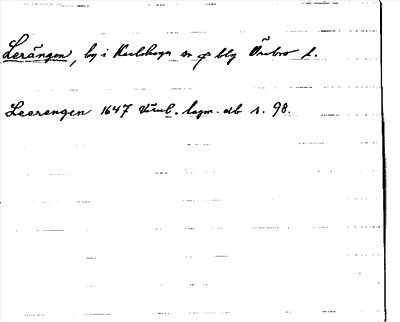 Lerängen, by i Karlskoga sn o. blg Örebro l.
Leerengen 1647 Värml. lagm. db s. 98.